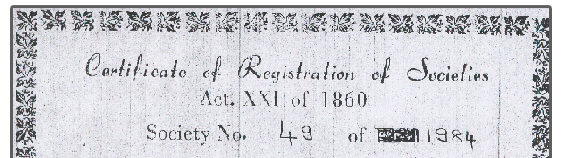 Certificate of Registration of Societies
Act. XXI of 1860
Society No. 49 of 1984